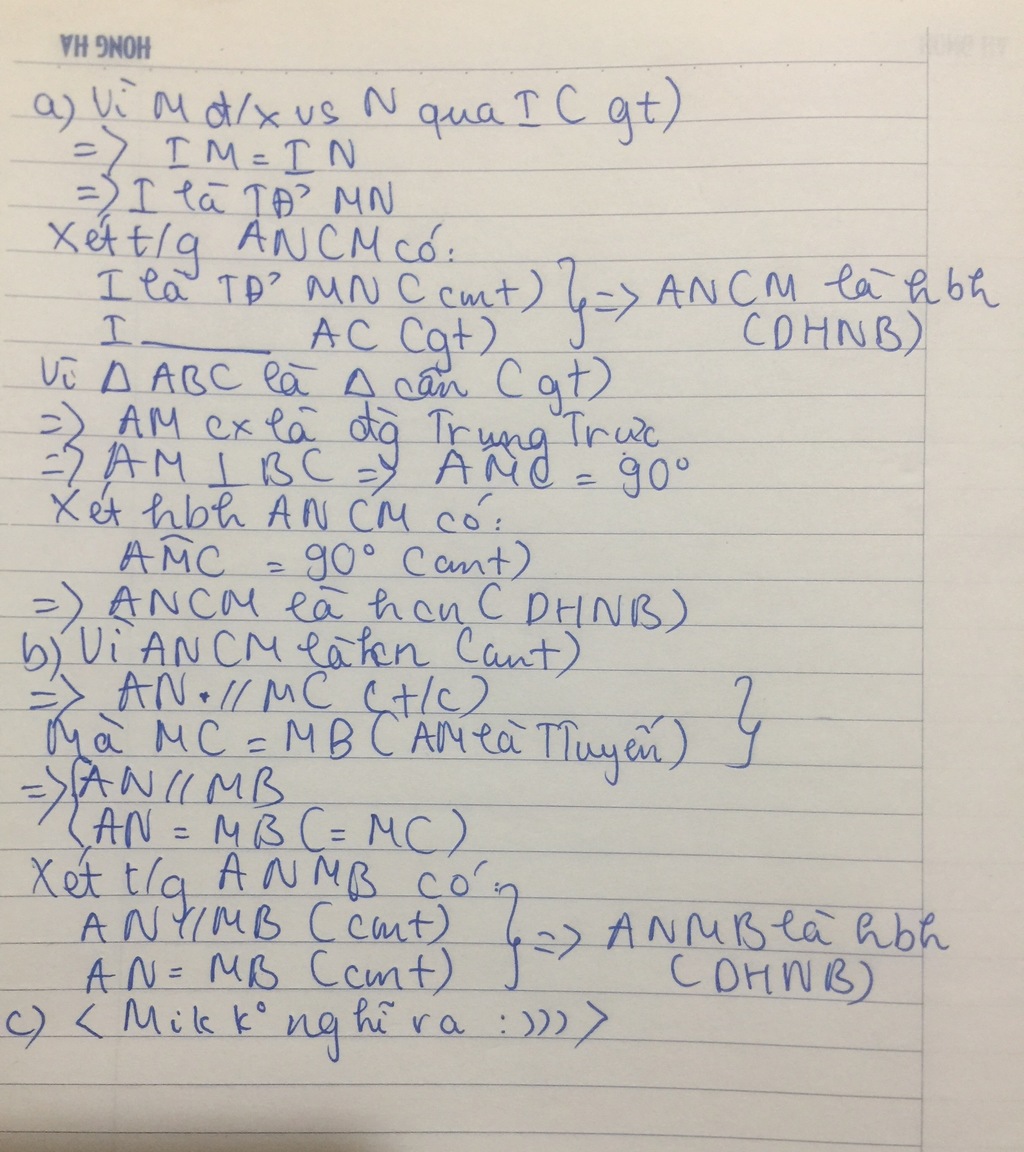 HONG HA
a) Vì M đ/x vs N qua I ( gt)
=> IM = IN
=> I là TĐ' MN
Xét t/g ANCM có:
I là TĐ' MN ( cmt) } => ANCM là hbh
I ____ AC (gt) (DHNB)
Vì Δ ABC là Δ cân ( gt)
=> AM cx là đg Trung Trực
=> AM ⊥ BC => AM̂C = 90°
Xét hbh ANCM có:
AM̂C = 90° (cmt)
=> ANCM là hcn ( DHNB)
b) Vì ANCM là hcn (cmt)
=> AN // MC (t/c) }
Mà MC = MB ( AM là TTuyến)
=> { AN // MB
AN = MB (= MC)
Xét t/g ANMB có:
AN // MB (cmt) } => ANMB là hbh
AN = MB (cmt) (DHNB)
c) < Mik k° nghĩ ra :)))>